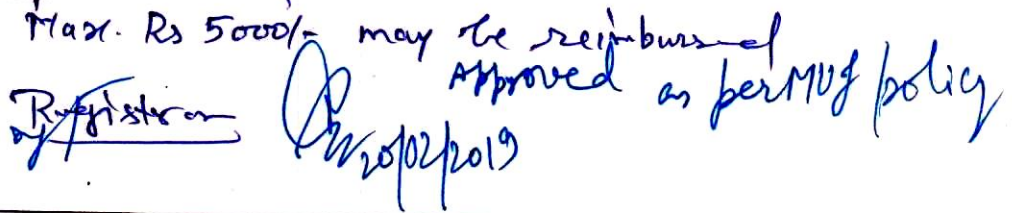 Max. Rs 5000/- may be reimbursed
Approved as per MUJ policy
Registrar
20/02/2019